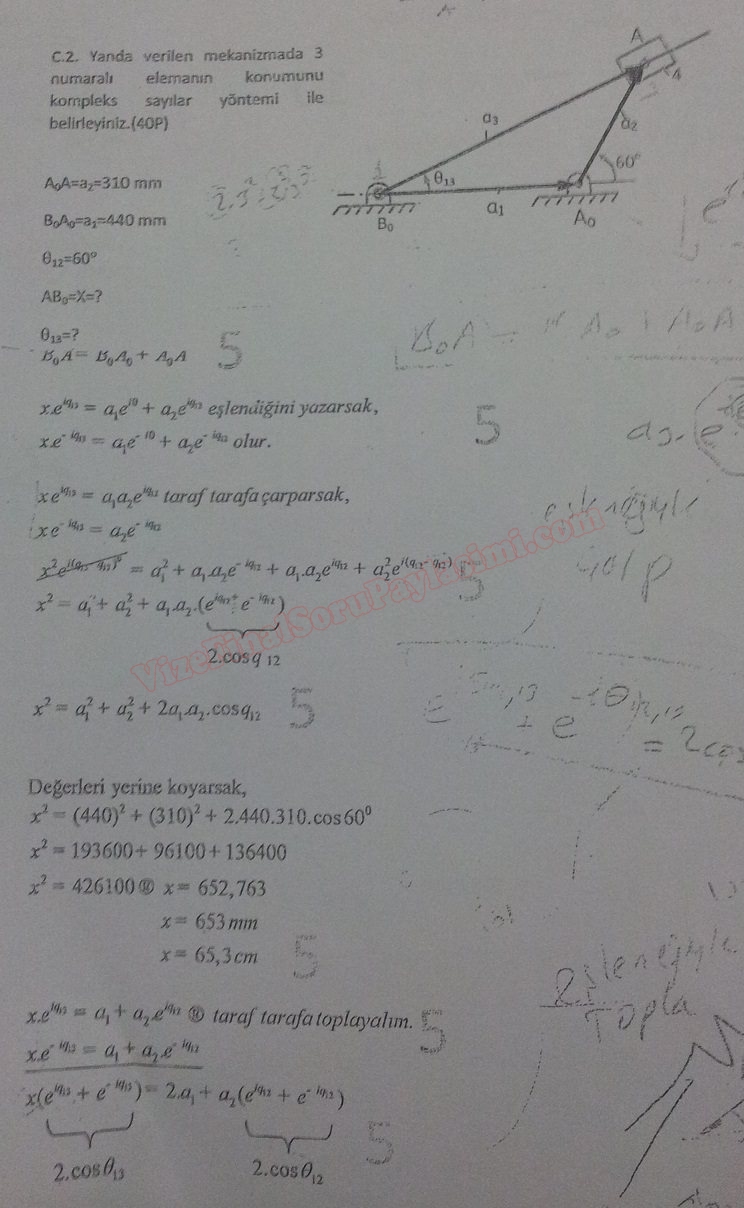 C.2. Yanda verilen mekanizmada 3
numaralı elemanın konumunu
kompleks sayılar yöntemi ile
belirleyiniz.(40P)
A
4
a₂
a₃
60°
θ₁₃
a₁
B₀
A₀
A₀A=a₂=310 mm
B₀A₀=a₁=440 mm
θ₁₂=60°
AB₀=X=?
θ₁₃=?
B₀A = B₀A₀ + A₀A
5
x.e^{iq₁₃} = a₁e^{i0} + a₂e^{iq₁₂} eşlendiğini yazarsak,
x.e^{- iq₁₃} = a₁e^{- i0} + a₂e^{- iq₁₂} olur.
5
x e^{iq₁₃} = a₁a₂e^{iq₁₂} taraf tarafa çarparsak,
x e^{- iq₁₃} = a₂e^{- iq₁₂}
x²e^{i(q₁₃- q₁₃)⁰} = a₁² + a₁.a₂e^{- iq₁₂} + a₁.a₂e^{iq₁₂} + a₂²e^{i(q₁₂- q₁₂)}
5
x² = a₁² + a₂² + a₁.a₂.(e^{iq₁₂} + e^{- iq₁₂})
2.cosq ₁₂
x² = a₁² + a₂² + 2a₁.a₂.cosq₁₂
5
Değerleri yerine koyarsak,
x² = (440)² + (310)² + 2.440.310.cos60⁰
x² = 193600+ 96100+ 136400
x² = 426100 ® x = 652,763
x = 653mm
x = 65,3cm
5
x.e^{iq₁₃} = a₁ + a₂.e^{iq₁₂} ® taraf tarafa toplayalım.
x.e^{- iq₁₃} = a₁ + a₂.e^{- iq₁₂}
5
x(e^{iq₁₃} + e^{- iq₁₃}) = 2.a₁ + a₂(e^{iq₁₂} + e^{- iq₁₂})
2.cosθ₁₃
2.cosθ₁₂
5
B₀A = A₀ + A₀A
eşleniğiyle
çarp
= 2cos
Eşleniğiyle
Topla
VizeFinalSoruPaylasimi.com